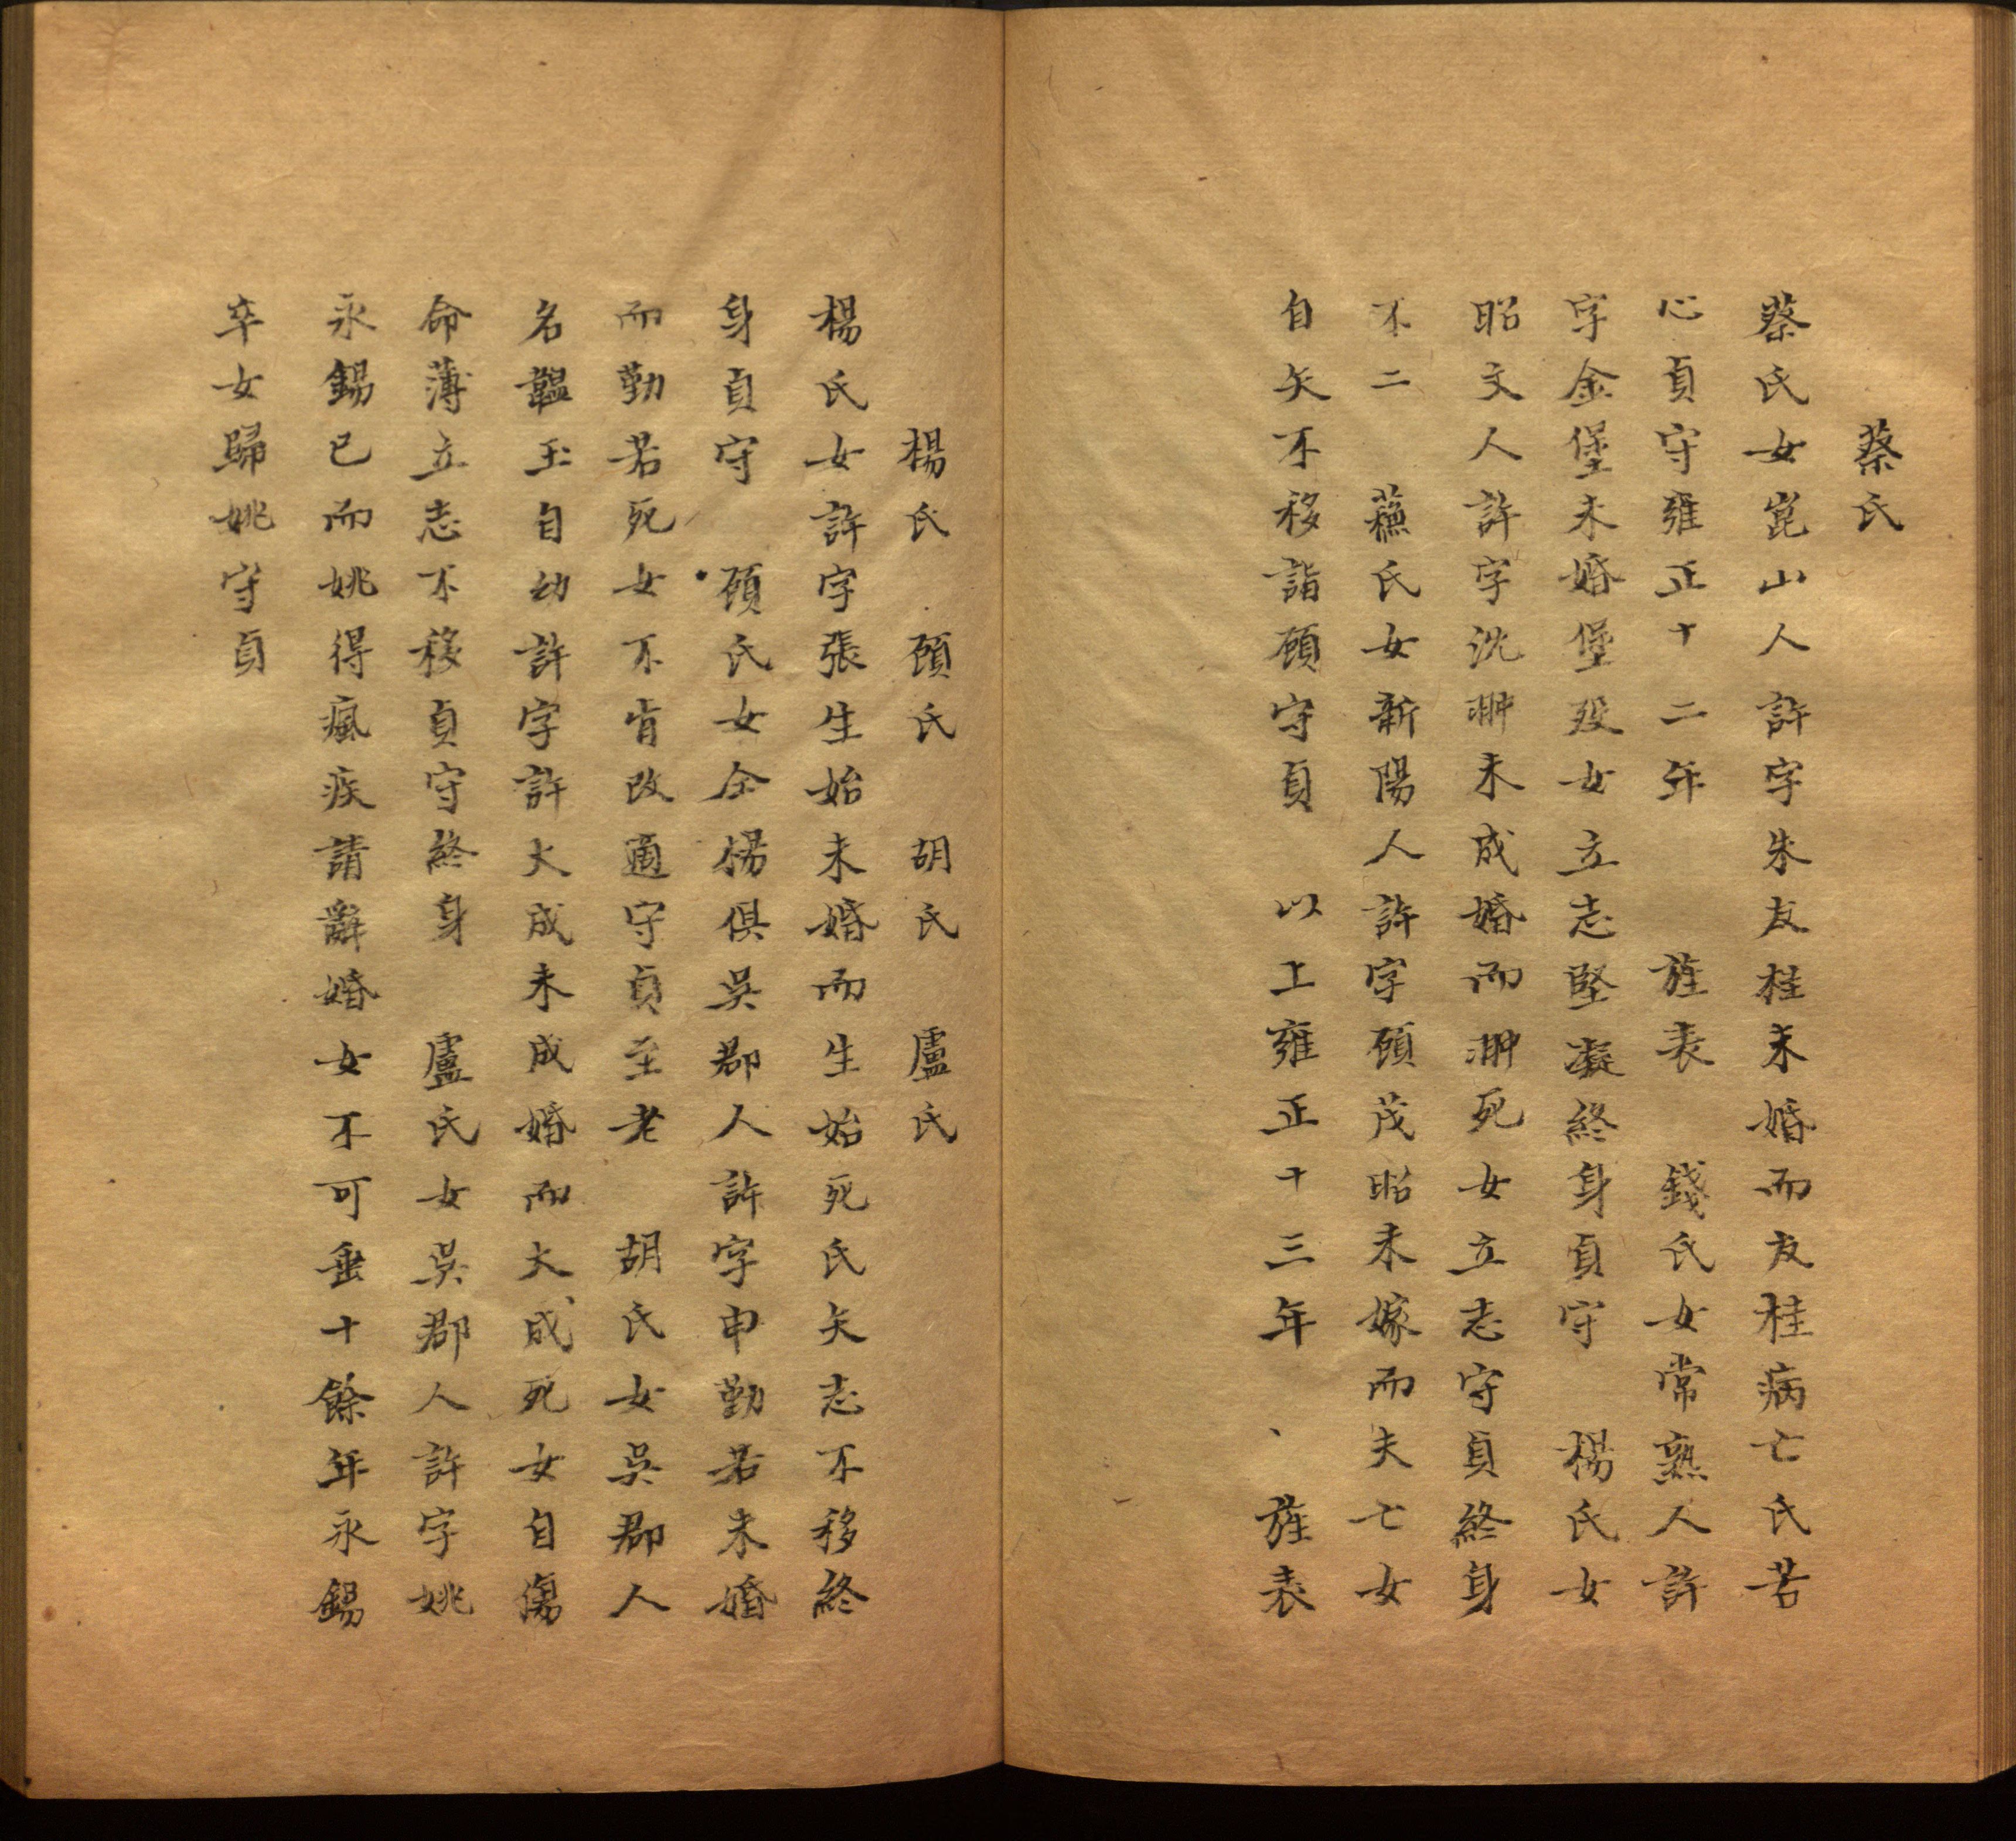 蔡氏
蔡氏女崑山人許字朱友桂未婚而友桂病亡氏苦
心貞守雍正十二年 旌表 錢氏女常熟人許
字金堡未婚堡殁女立志堅凝終身貞守 楊氏女
昭文人許字沈翀未成婚而翀死女立志守貞終身
不二 蘓氏女新陽人許字顧茂昭未嫁而夫亡女
自矢不移詣顧守貞 以上雍正十三年 旌表
楊氏 顧氏 胡氏 盧氏
楊氏女許字張生始未婚而生始死氏矢志不移終
身貞守 顧氏女仝楊俱吳郡人許字申勤若未婚
而勤若死女不肯改適守貞至老 胡氏女吳郡人
名韞玉自幼許字許大成未成婚而大成死女自傷
命薄立志不移貞守終身 盧氏女吳郡人許字姚
永錫已而姚得瘋疾請辭婚女不可垂十餘年永錫
卒女歸姚守貞